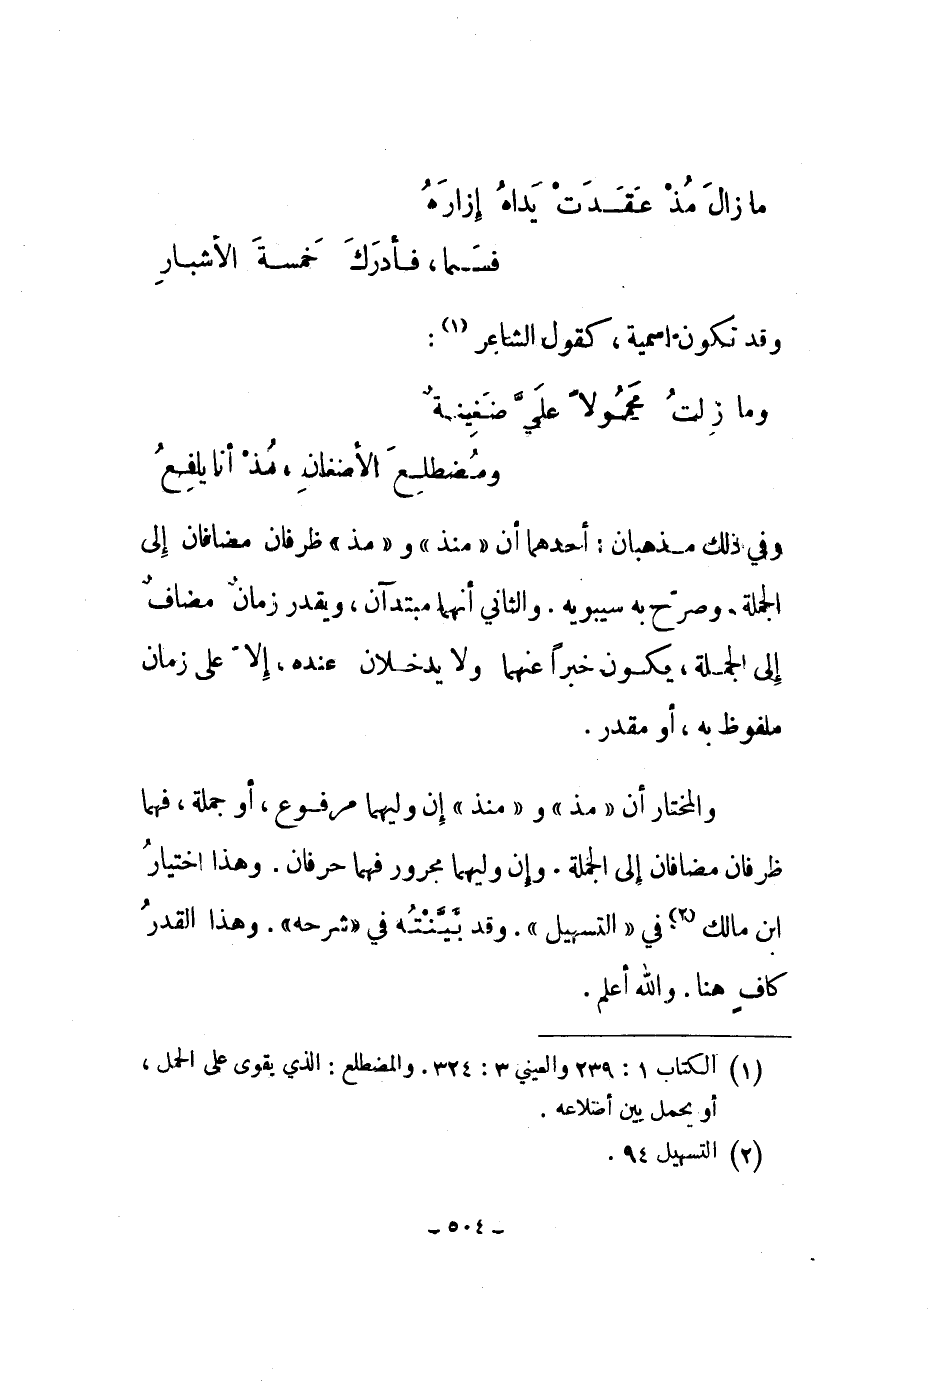 ما زالَ مُذْ عَقَدَتْ يَداهُ إزارَهُ
فسَما، فأدرَكَ خَمسةَ الأشبارِ
وقد تكون اسمية، كقول الشاعر (١) :
وما زِلتُ مَحمُولاً عليَّ ضَغِينةٌ
ومُضطلِعَ الأضغانِ، مُذْ أنا يافِعُ
وفي ذلك مذهبان : أحدهما أن «منذ» و «مذ» ظرفان مضافان إلى
الجملة. وصرّح به سيبويه. والثاني أنهما مبتدآن، ويقدر زمانٌ مضافٌ
إلى الجملة، يكون خبراً عنهما ولا يدخلان عنده، إلاّ على زمان
ملفوظ به، أو مقدر.
والمختار أن «مذ» و «منذ» إن وليهما مرفوع، أو جملة، فهما
ظرفان مضافان إلى الجملة. وإن وليهما مجرور فهما حرفان. وهذا اختيارُ
ابن مالك (٢) في «التسهيل». وقد بَيَّنْتُه في «شرحه». وهذا القدرُ
كافٍ هنا. والله أعلم.
(١) الكتاب ١ : ٢٣٩ والعيني ٣ : ٣٢٤. والمضطلع : الذي يقوى على الحمل،
أو يحمل بين أضلاعه.
(٢) التسهيل ٩٤.
ـ ٥٠٤ ـ